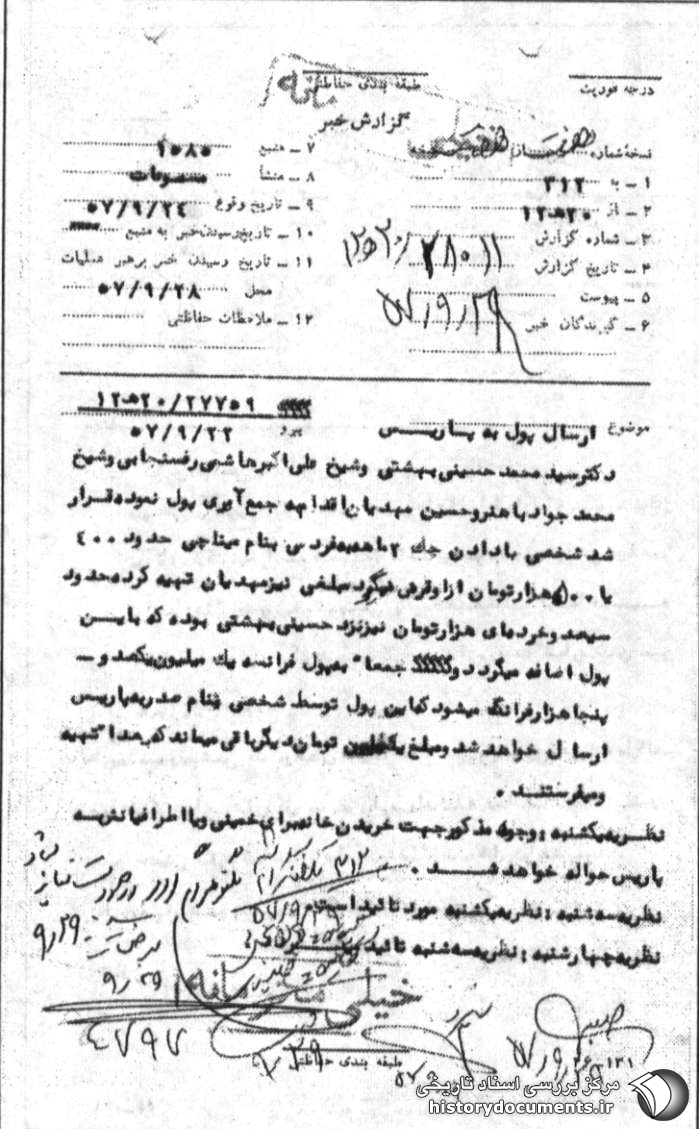 درجه فوریت
طبقه بندی حفاظتی
گزارش خبر
نسخهٔ شماره
۱ – به ۳۱۲
۲ – از ۲۰هـ۱۲
۳ – شماره گزارش ۲۸۰۱۱/۲۰هـ۱۲
۴ – تاریخ گزارش ۵۷/۹/۲۹
۵ – پیوست
۶ – گیرندگان خبر
۷ – منبع ۱۵۸۵
۸ – منشأ مسموعات
۹ – تاریخ وقوع ۵۷/۹/۲۴
۱۰ – تاریخ رسیدن خبر به منبع
۱۱ – تاریخ رسیدن خبر برهبر عملیات
محل ۵۷/۹/۲۸
۱۲ – ملاحظات حفاظتی
۲۷۷۵۹/۲۰هـ۱۲
موضوع ارسال پول به پاریس پیرو ۵۷/۹/۲۲
دکتر سید محمد حسینی بهشتی وشیخ علی اکبر هاشمی رفسنجانی وشیخ
محمد جواد باهنر وحسین مهدیان اقدام به جمع آوری پول نموده قرار
شد شخصی با دادن چك ۲ ماهه بفردی بنام میناچی حدود ۴۰۰
یا ۵۰۰ هزار تومان از او قرض میگیرد مبلغی نیز مهدیان تهیه کرده حدود
سیصد وخرده‌ای هزار تومان نیز نزد حسینی بهشتی بوده که باین
پول اضافه میگردد و جمعا" به پول فرانسه یك میلیون یکصد و –
پنجاه هزار فرانك میشود که این پول توسط شخصی بنام صدر به پاریس
ارسال خواهد شد ومبلغ تومان دیگر باقی میماند که بعدا" تهیه
ومیفرستند .
نظریه یکشنبه : وجوه مذکور جهت خریدن خانه برای خمینی ویا اطرافیانش به
پاریس حواله خواهد شد .
نظریه سه شنبه : نظریه یکشنبه مورد تائید است
نظریه چهارشنبه : نظریه سه شنبه تائید
۳۱۲
۵۷/۹/۲۹
۹/۲۹
۹/۲۹
خیلی محرمانه
۴۷۹۷
طبقه بندی حفاظتی
۱۳۱
مرکز بررسی اسناد تاریخی
historydocuments.ir